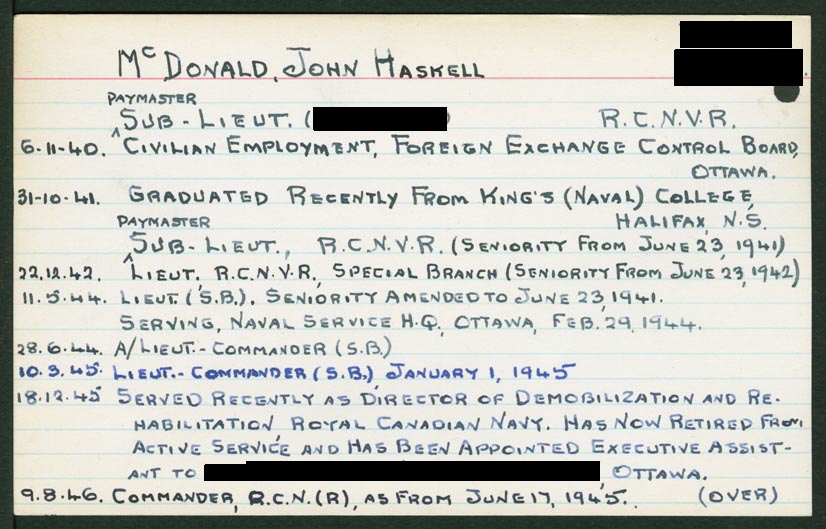 McDONALD, JOHN HASKELL
PAYMASTER
SUB-LIEUT. ( ) R.C.N.V.R.
6-11-40. CIVILIAN EMPLOYMENT, FOREIGN EXCHANGE CONTROL BOARD,
OTTAWA.
31-10-41. GRADUATED RECENTLY FROM KING'S (NAVAL) COLLEGE,
PAYMASTER HALIFAX, N.S.
SUB-LIEUT., R.C.N.V.R. (SENIORITY FROM JUNE 23, 1941)
22.12.42. LIEUT. R.C.N.V.R., SPECIAL BRANCH (SENIORITY FROM JUNE 23, 1942)
11.5.44. LIEUT. (S.B.). SENIORITY AMENDED TO JUNE 23, 1941.
SERVING, NAVAL SERVICE H.Q., OTTAWA, FEB. 29, 1944.
28.6.44. A/LIEUT.-COMMANDER (S.B.)
10.3.45. LIEUT.-COMMANDER (S.B.), JANUARY 1, 1945
18.12.45 SERVED RECENTLY AS DIRECTOR OF DEMOBILIZATION AND RE-
HABILITATION, ROYAL CANADIAN NAVY. HAS NOW RETIRED FROM
ACTIVE SERVICE AND HAS BEEN APPOINTED EXECUTIVE ASSIST-
ANT TO OTTAWA.
9.8.46. COMMANDER, R.C.N.(R), AS FROM JUNE 17, 1945. (OVER)